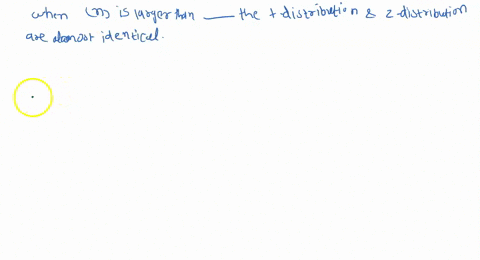 when (n) is larger than ___ the t distribution & z-distribution
are almost identical.